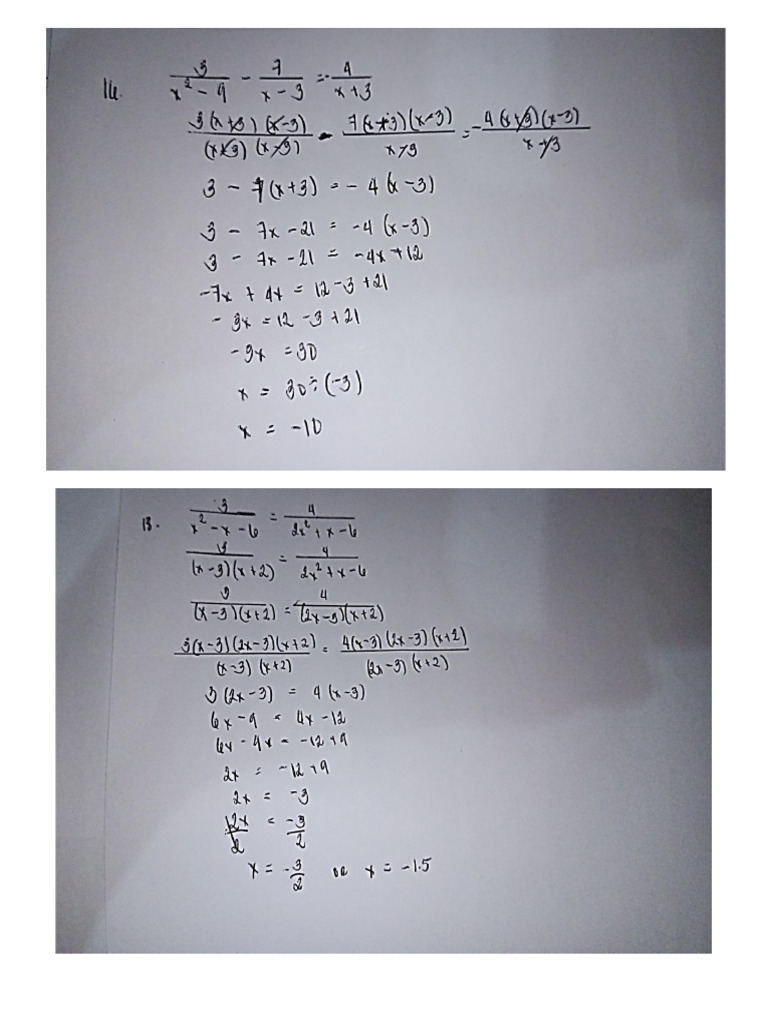 14. 3/(x² - 9) - 7/(x - 3) = -4/(x + 3)
3(x+3)(x-3)/((x+3)(x-3)) - 7(x+3)(x-3)/(x-3) = -4(x+3)(x-3)/(x+3)
3 - 7(x+3) = -4(x-3)
3 - 7x - 21 = -4(x-3)
3 - 7x - 21 = -4x + 12
-7x + 4x = 12 - 3 + 21
-3x = 12 - 3 + 21
-3x = 30
x = 30 ÷ (-3)
x = -10
13. 3/(x² - x - 6) = 4/(2x² + x - 6)
3/((x-3)(x+2)) = 4/(2x² + x - 6)
3/((x-3)(x+2)) = 4/((2x-3)(x+2))
3(x-3)(2x-3)(x+2)/((x-3)(x+2)) = 4(x-3)(2x-3)(x+2)/((2x-3)(x+2))
3(2x-3) = 4(x-3)
6x - 9 = 4x - 12
6x - 4x = -12 + 9
2x = -12 + 9
2x = -3
2x/2 = -3/2
x = -3/2 or x = -1.5